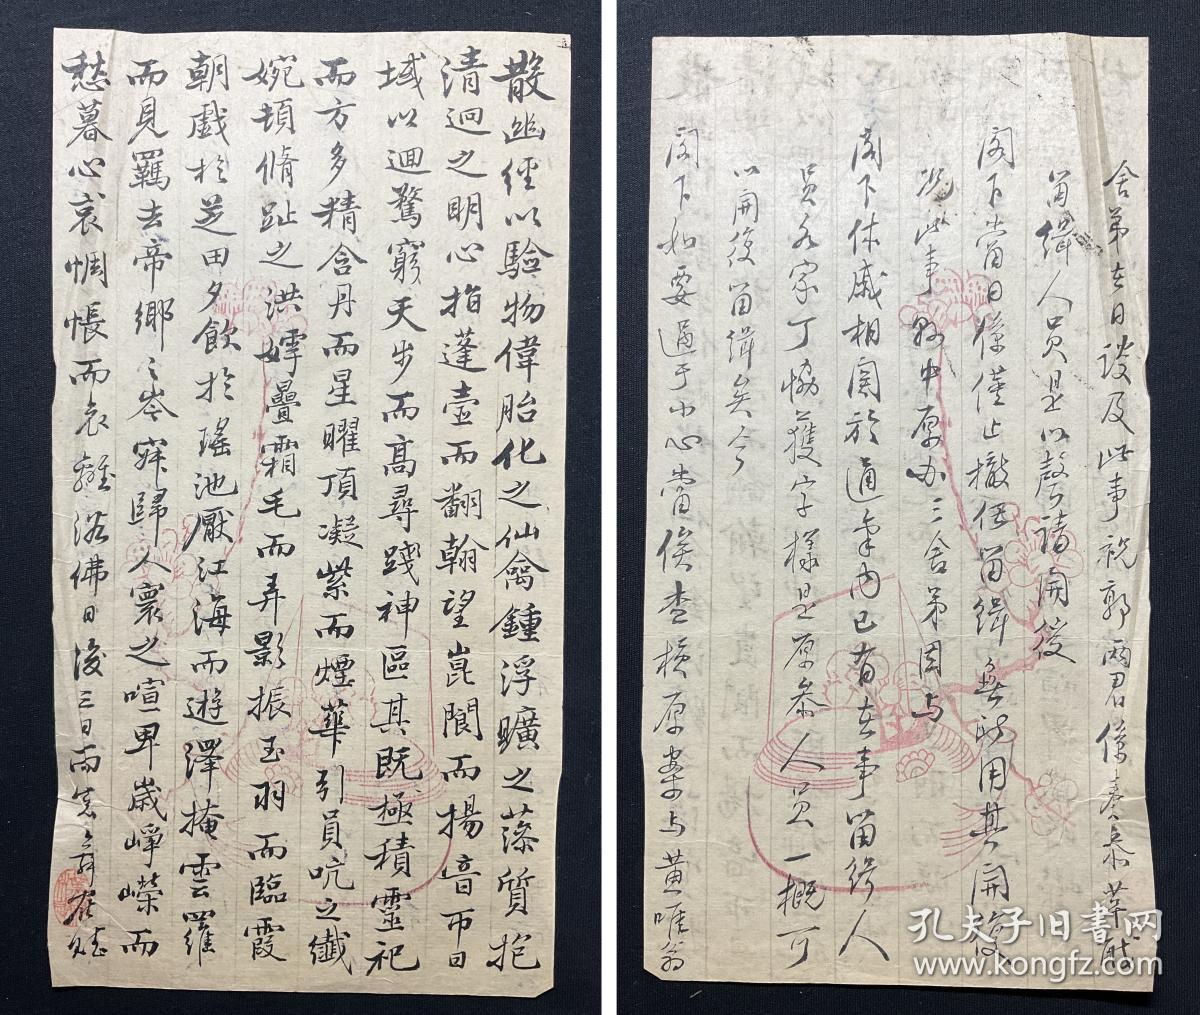 散幽經以驗物偉胎化之仙禽鍾浮曠之藻質抱
清迥之明心指蓬壺而翻翰望崑閬而揚音帀日
域以迴鶩窮天步而高尋踐神區其既極積靈祀
而方多精含丹而星曜頂凝紫而煙華引員吭之纖
婉頓脩趾之洪姱疊霜毛而弄影振玉羽而臨霞
朝戲於芝田夕飲於瑤池厭江海而遊澤掩雲羅
而見羈去帝鄉之岑寂歸人寰之喧卑歲崢嶸而
愁暮心哀惆悵而哀離浴佛日後三日雨窗
舍弟在日談及此事祝郭兩君係奏參革職
留緝人員是以聲請開復
閣下當日係僅止撤任留緝無所用其開復
況此事縣中原办三舍弟因与
閣下休戚相関於通稟內已有在事留緝人
員丁協獲字樣是原參人員一概可
以開復留緝矣今
閣下如要過于小心當俟查檢原案与黄唯翁
孔夫子旧书网
www.kongfz.com